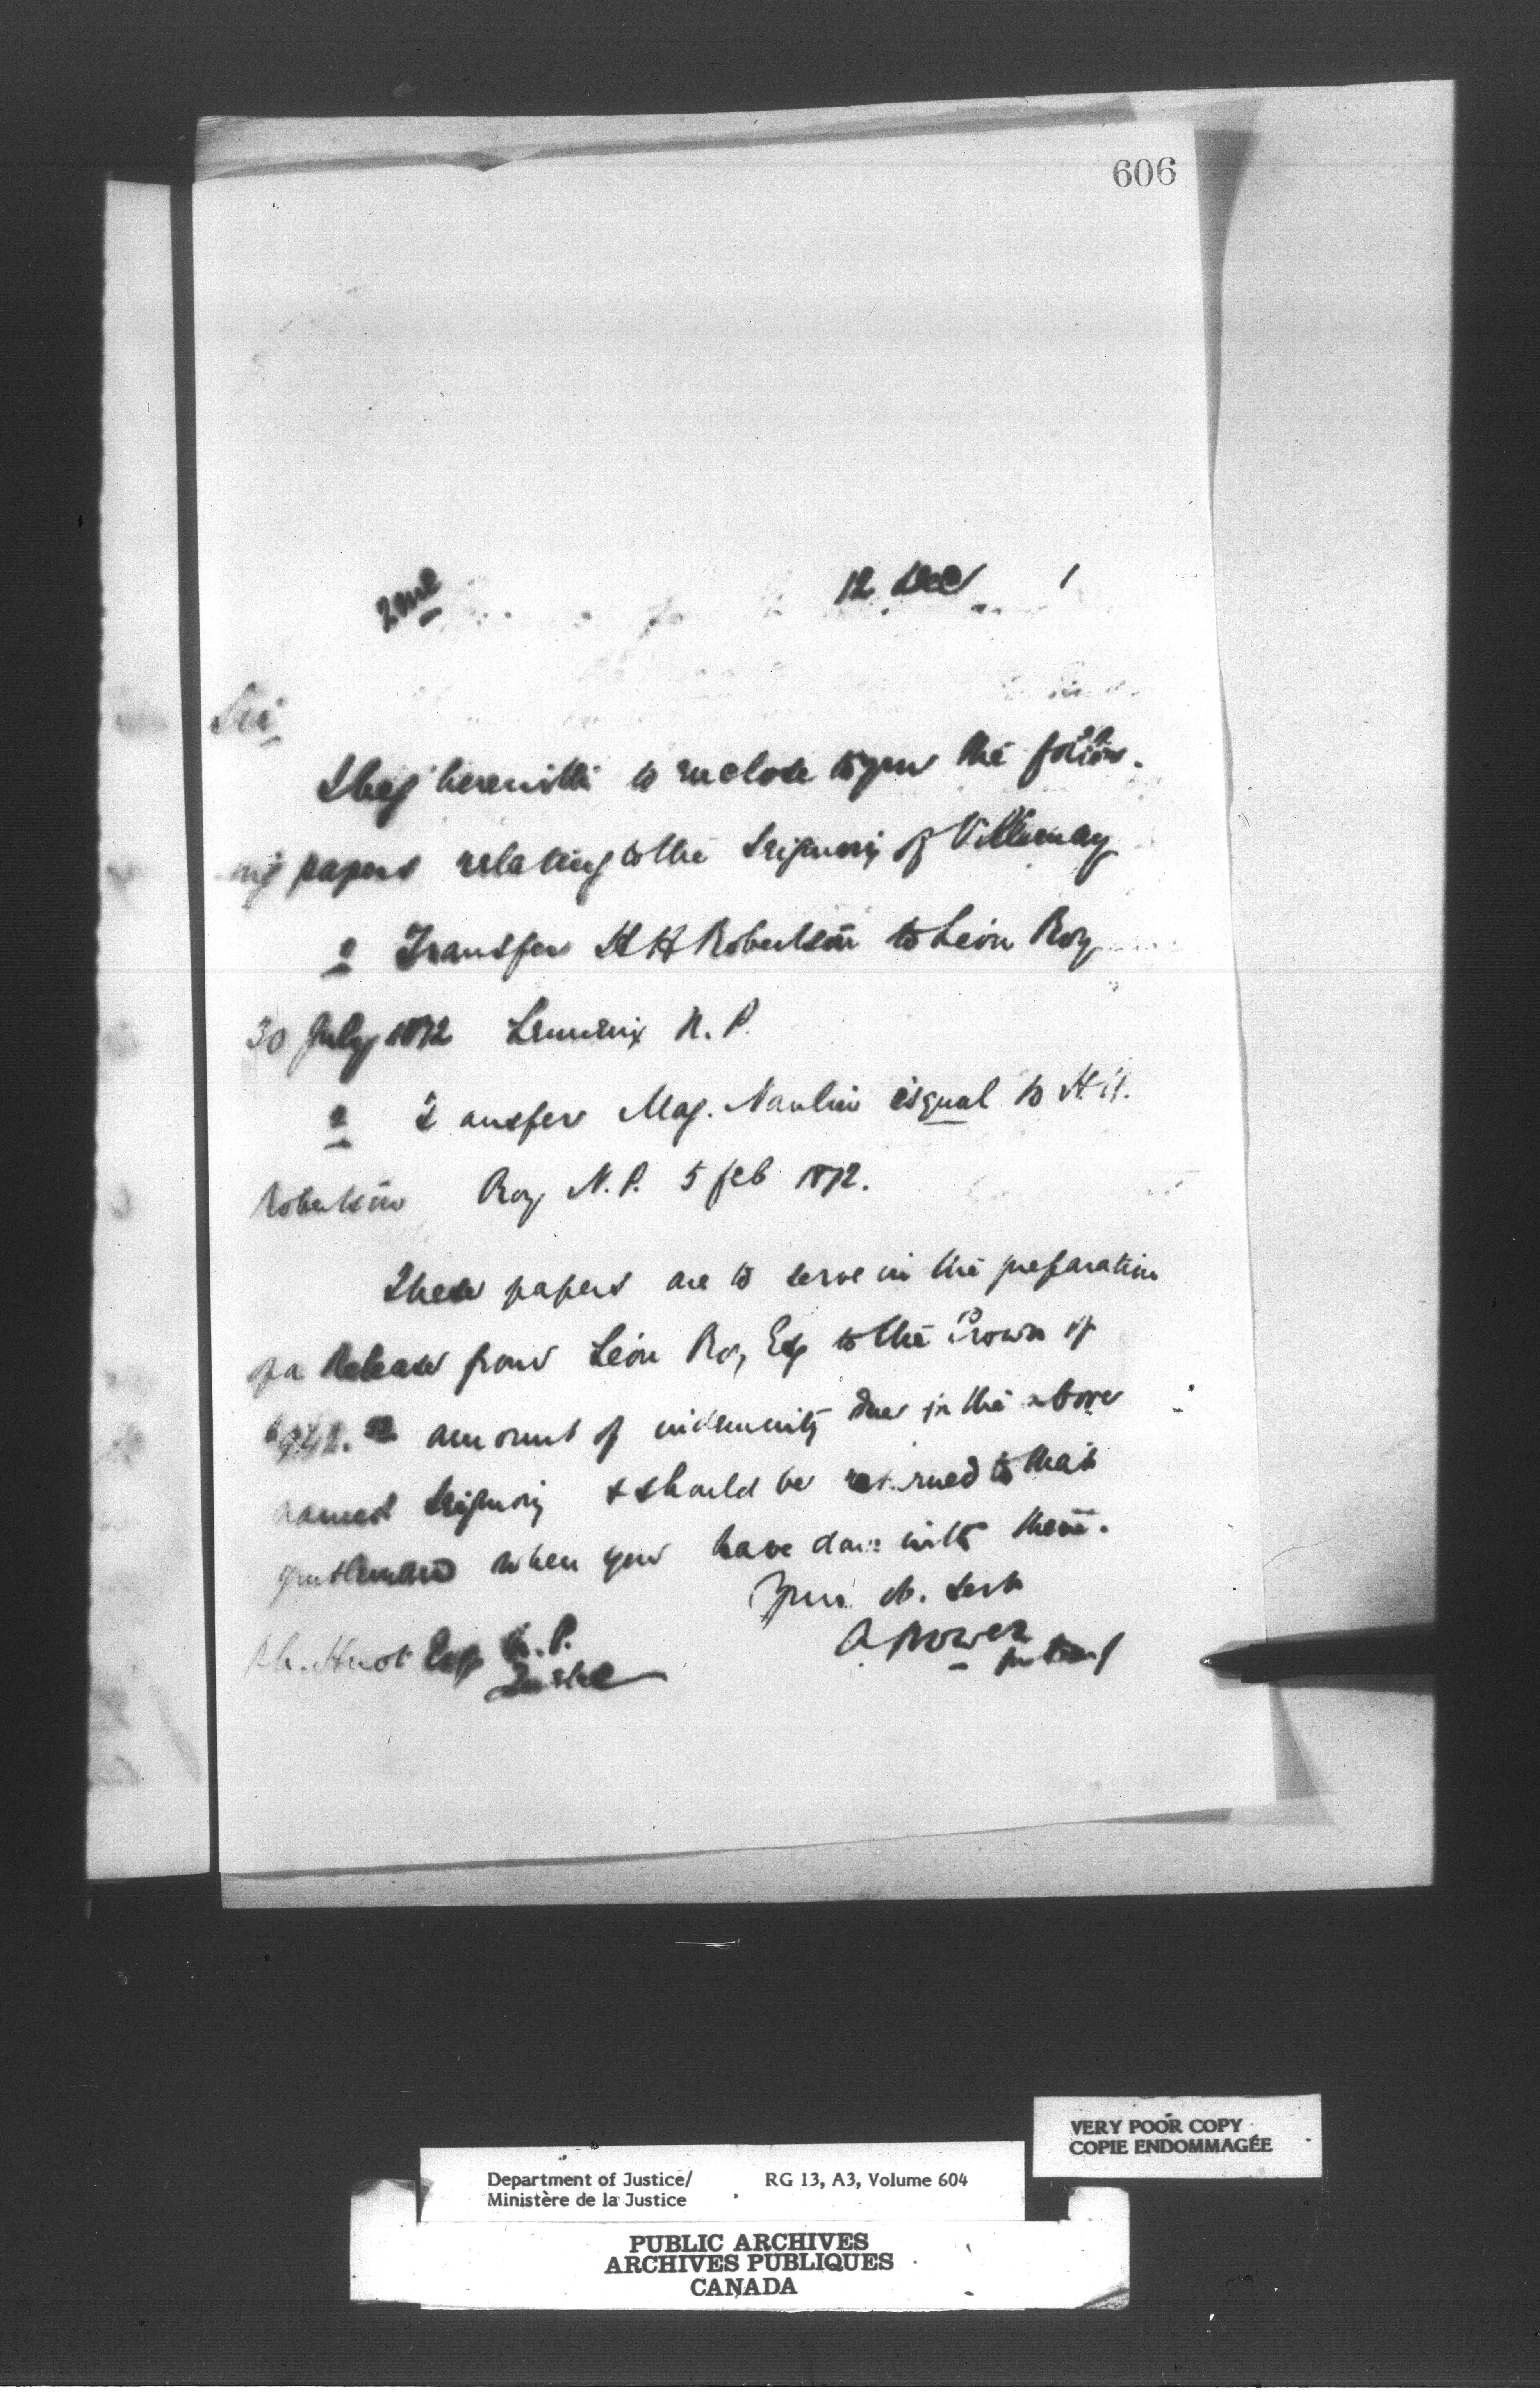 606
2me 12 Dec
Sir
I beg herewith to enclose to you the follow-
ing papers relating to the Seigniory of Villeray
Transfer H H Robertson to Léon Roy
30 July 1872 Lemieux N. P.
Mag. Nault to H H.
Robertson Roy N. P. 5 feb 1872.
These papers are to serve in the preparation
of a Release from Léon Roy Esq to the Crown of
amount of indemnity due in the above
named Seigniory & should be returned to that
gentleman when you have done with them.
Your ob. Servt
Ph. Huot Esq N. P. A Power
Quebec
VERY POOR COPY
COPIE ENDOMMAGÉE
Department of Justice/ RG 13, A3, Volume 604
Ministère de la Justice
PUBLIC ARCHIVES
ARCHIVES PUBLIQUES
CANADA